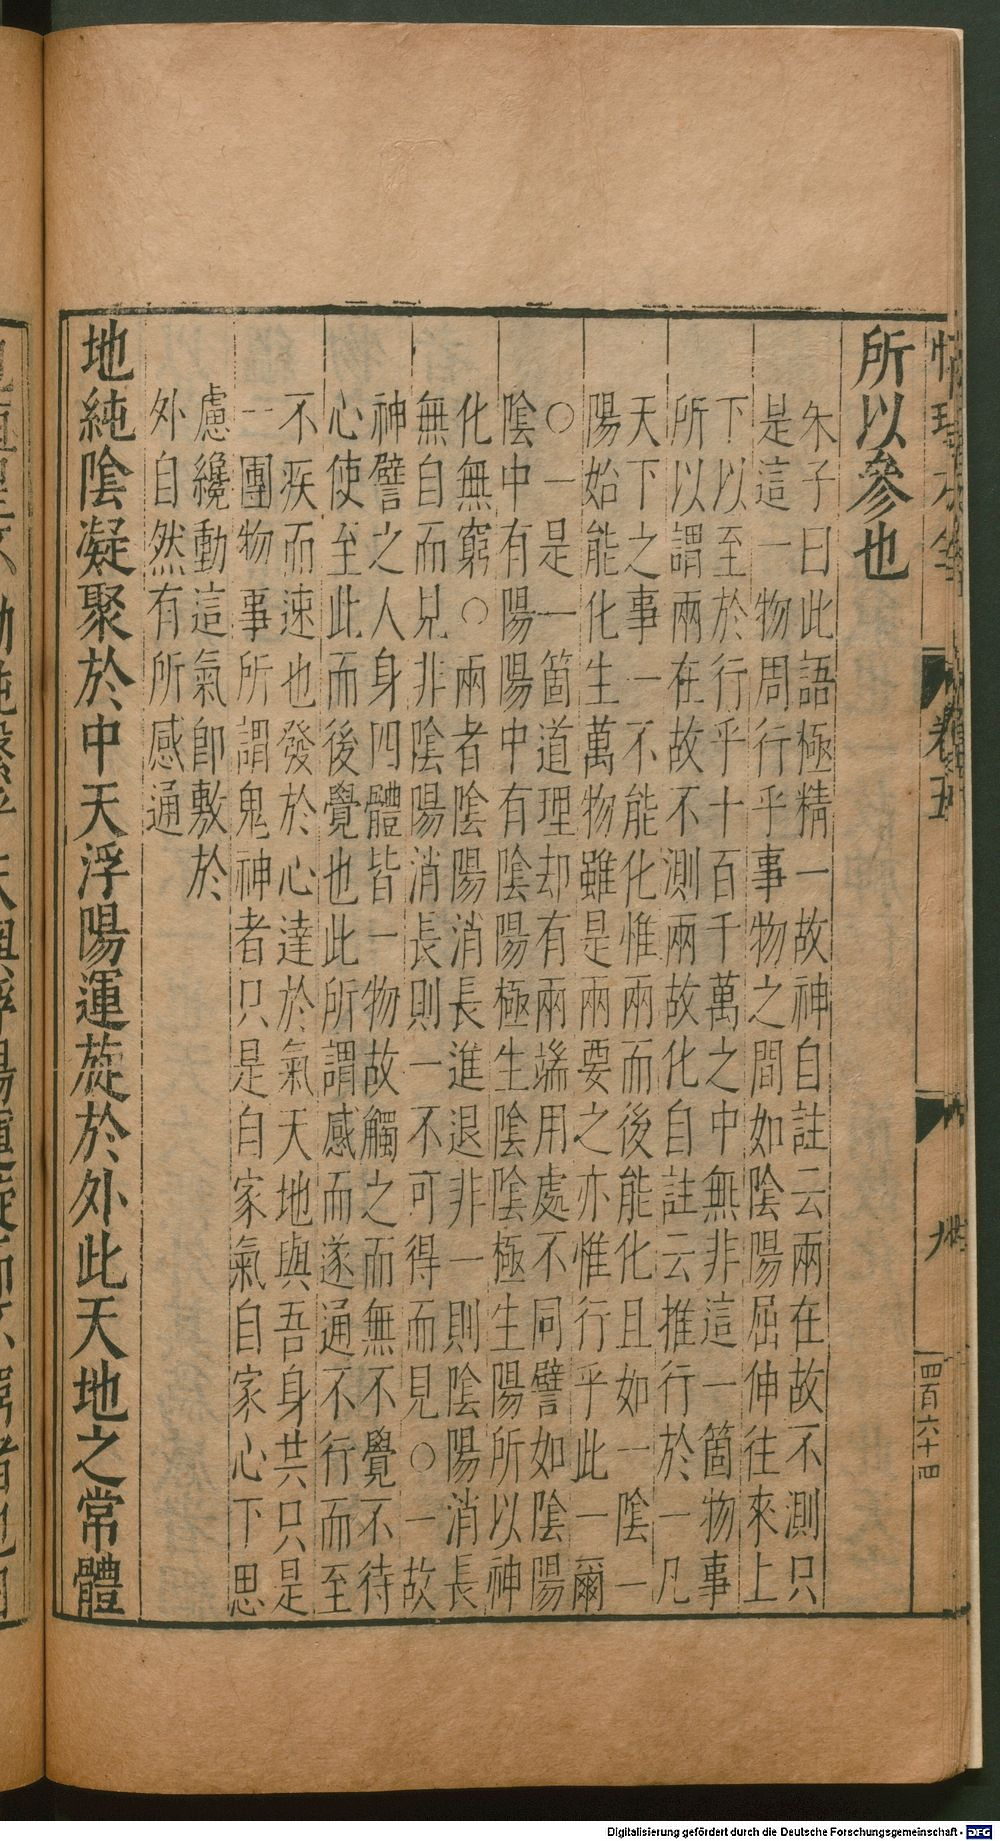 所以參也
朱子曰此語極精一故神自註云兩在故不測只
是這一物周行乎事物之間如陰陽屈伸往來上
下以至於行乎十百千萬之中無非這一箇物事
所以謂兩在故不測兩故化自註云推行於一凡
天下之事一不能化惟兩而後能化且如一陰一
陽始能化生萬物雖是兩要之亦惟行乎此一爾
○一是一箇道理却有兩端用處不同譬如陰陽
陰中有陽陽中有陰陽極生陰陰極生陽所以神
化無窮○兩者陰陽消長進退非一則陰陽消長
無自而見非陰陽消長則一不可得而見○一故
神譬之人身四體皆一物故觸之而無不覺不待
心使至此而後覺也此所謂感而遂通不行而至
不疾而速也發於心達於氣天地與吾身共只是
一團物事所謂鬼神者只是自家氣自家心下思
慮纔動這氣即敷於
外自然有所感通
地純陰凝聚於中天浮陽運旋於外此天地之常體
卷五
九
四百六十四
Digitalisierung gefördert durch die Deutsche Forschungsgemeinschaft - DFG